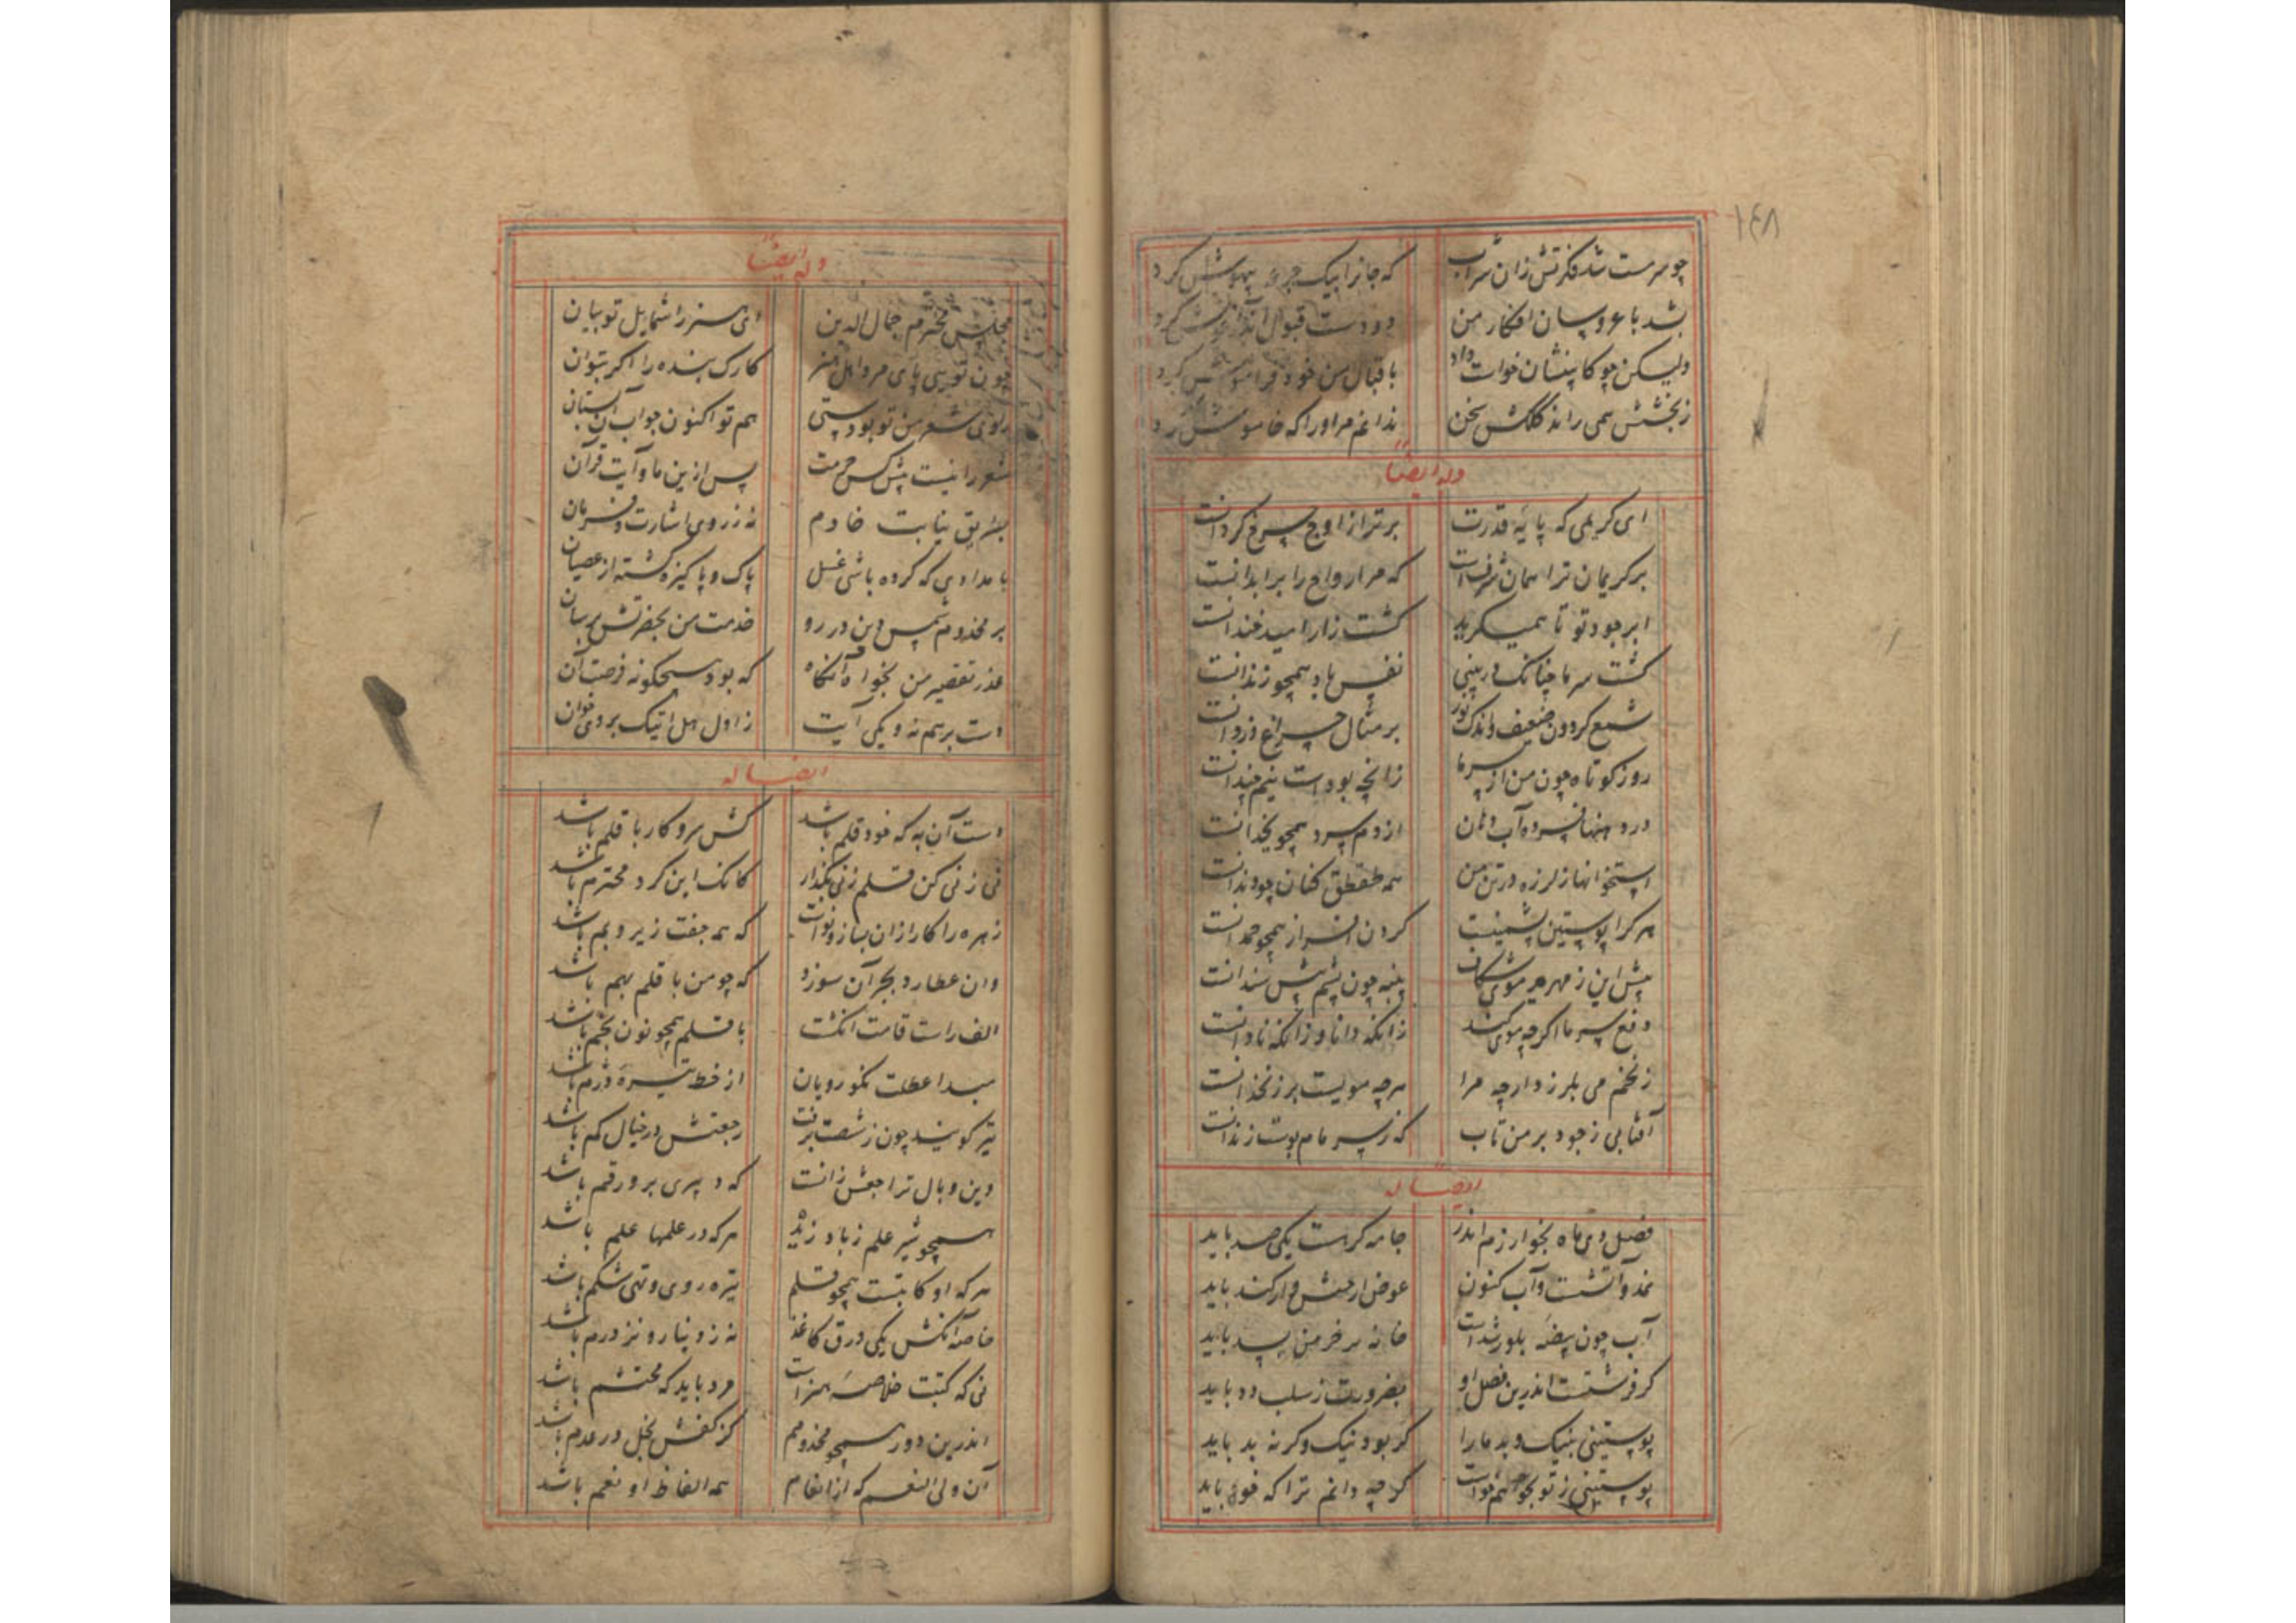 ۱۴۸
چو سرمست شد فکرتش زان شراب که جانرا بیک جرعه بیهوش کرد
بشد با عروسان افکار من دو دست قبول اندر آغوش کرد
ولیکن چو کابینشان خواست داد باقبال من خود فراموش کرد
ز بخشش همی راند کلکش سخن ندانم مر او را که خاموش کرد
وله ایضا
ای کریمی که پایه قدرت برتر از اوج چرخ گردانست
بر کریمان ترا همان شرفست که مر ارواح را بر ابدانست
ابر جود تو تا همیگرید کشت زار امید خندانست
گشت سرما چنانک در بینی نفس باد همچو زندانست
شمع گردون ضعیف و اندک نور بر مثال چراغ دزدانست
روز کوتاه چون من از سرما زانچه بودست نیم چندانست
در دهنها فسرده آب دهان از دم سرد همچو یخدانست
استخوانها ز لرزه در تن من همه طقطق کنان چو دندانست
هر کرا پوستین پشمینست گردن افراز همچو حمدانست
پیش این زمهریر موی شکاف پنبه چون پشم پیش سندانست
دفع سرما اگرچه موی کند زانکه دانا و زانکه نادانست
ز نخم می بلرزد ارچه مرا هرچه مویست بر زنخدانست
آفتابی ز جود بر من تاب که ز سرما م پوست زندانست
ایضا له
فصل دی ماه بخوارزم اندر جامه گر هست یکی صد باید
نمد و آتشست و آب کنون عوض ار خیش و ار کند باید
آب چون بیضه بلور شدست خانه بر خر من بسد باید
گر فرشتست اندرین فصل او بضرورت ز سلب دد باید
پوستینی بنیک و بد ما را گر بود نیک و گر نه بد باید
پوستینی ز تو بخواهم خواست گرچه دانم ترا که خود باید
وله ایضا
مجلس محترم جمال الدین ای هنر را شمایل تو بیان
چون تویی پای مرد اهل هنر کارک بنده را اگر بتوان
راوی شعر من تو بودستی هم تو اکنون جواب آن بستان
شعر را نیست پیش کس حرمت پس ازین ما و آیت قرآن
بطریق نیابت خادم نه ز روی اشارت و فرمان
بامدادی که کرده باشی غسل پاک و پاکیزه گشته از عصیان
بر مخدوم شمس دین در رو خدمت من بحضرتش برسان
عذر تقصیر من بخواه آنگاه که بود هیچگونه فرصت آن
دست بر هم نه و یکی آیت ز اول هل اتیک بر وی خوان
ایضا له
دست آن به که خود قلم باشد کش سر و کار با قلم باشد
نی زنی کن قلم زنی بگذار کانک این کرد محترم باشد
زهره را کار ازان بساز و نواست که همه جفت زیر و بم باشد
وان عطارد بجر آن سوزد که چو من با قلم بهم باشد
الف راست قامت انگشت با قلم همچو نون بخم باشد
مبدا عطلت نکو رویان از خط تیره دژم باشد
تیر گویند چون ز شصت برفت رجعتش در خیال کم باشد
وین وبال تراجعش زانست که دبیری برو رقم باشد
همچو شیر علم ز باد زید هر که در علمها علم باشد
هر که او کاتبست همچو قلم تیره روی و تهی شکم باشد
خاصه آنکش یکی ورق کاغذ نه ز دینار و نز درم باشد
نی که کتبت خلاصه هنراست مرد باید که محتشم باشد
اندرین دور همچو مخدومم کز کفش بخل در عدم باشد
آن ولی النعم که از انعام همه الفاظ او نعم باشد